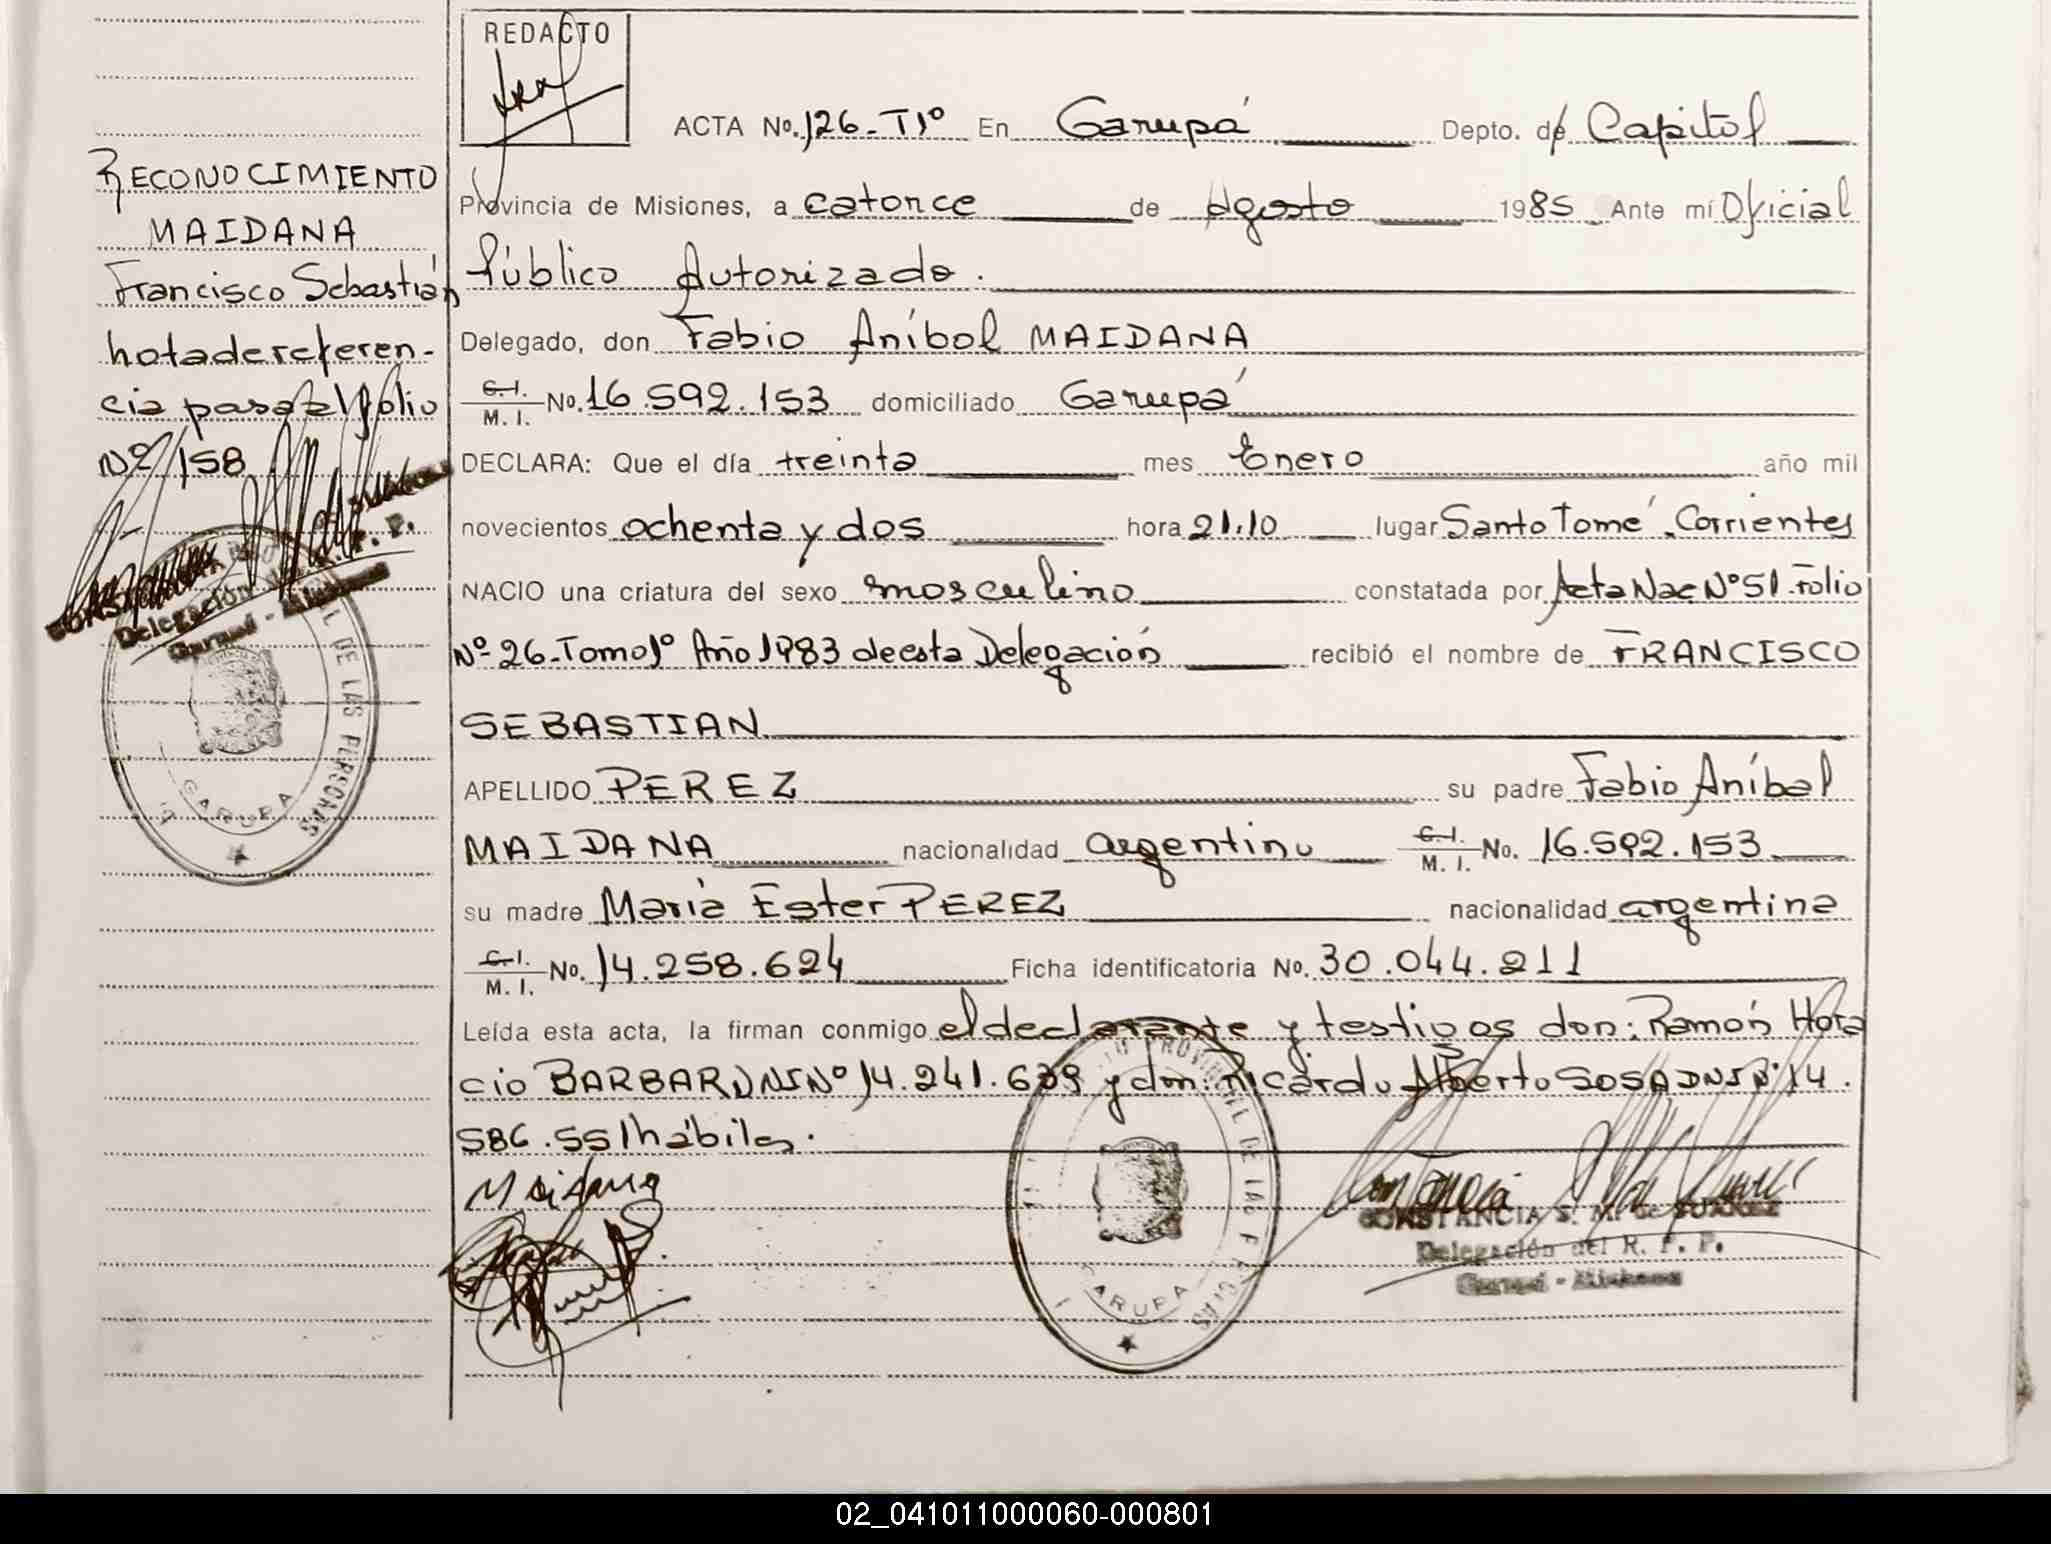 REDACTO
ACTA No. 126-T1º En Garupá Depto. de Capital
RECONOCIMIENTO
MAIDANA
Francisco Sebastián
nota de referen-
cia pasa al folio
Nº 158
Provincia de Misiones, a catorce de Agosto 1985 Ante mí Oficial
Público Autorizado.
Delegado, don Fabio Aníbal MAIDANA
C.I. M. I. No. 16.592.153 domiciliado Garupá
DECLARA: Que el día treinta mes Enero año mil
novecientos ochenta y dos hora 21.10 lugar Santo Tomé, Corrientes
NACIO una criatura del sexo masculino constatada por Acta Nac Nº 51. Folio
Nº 26-Tomo 1º Año 1983 de esta Delegación recibió el nombre de FRANCISCO
SEBASTIAN
APELLIDO PEREZ su padre Fabio Aníbal
MAIDANA nacionalidad argentino C.I. M. I. No. 16.592.153
su madre María Ester PEREZ nacionalidad argentina
C.I. M. I. No. 14.258.624 Ficha identificatoria No. 30.044.211
Leída esta acta, la firman conmigo el declarante y testigos don: Ramón Hora
cio BARBARO DNI Nº 14.241.639 y don: Ricardo Alberto SOSA DNI Nº 14.
586.551 hábiles.
Maidana
CONSTANCIA S. M. de SUAREZ
Delegación del R. P. P.
Garupá - Misiones
DE LAS PERSONAS
GARUPA
02_041011000060-000801